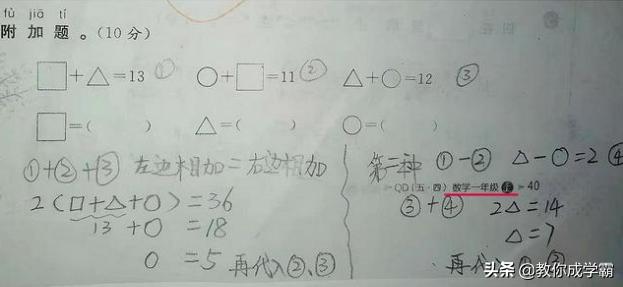 fù jiā tí
附 加 题 。(10分)
□+△=13 ① ○+□=11 ② △+○=12 ③
□=( ) △=( ) ○=( )
①+②+③ 左边相加=右边相加
2(□+△+○)=36
13+○=18
○=5 再代入②、③
第二种 ①-② △-○=2 ④
QD(五·四) 数学一年级 上 40
③+④ 2△=14
△=7
再代入①、②
头条 @教你成学霸